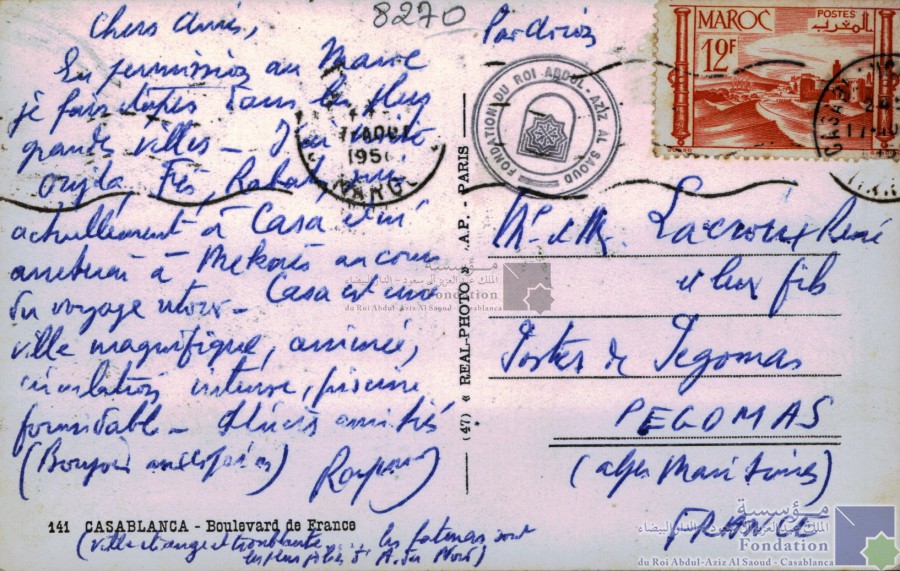 8270
Chers Amis,
Par avion
En permission au Maroc
je fais étapes dans les plus
grandes villes - J'ai visité
Oujda, Fès, Rabat, suis
actuellement à Casa et
arrêterai à Meknès au cours
du voyage retour - Casa est une
ville magnifique, animée,
circulation intense, piscine
formidable - amitiés
(Bonjour aux copains)
Raymond
141 CASABLANCA - Boulevard de France
(Ville étrange et troublante les fatmas sont
les plus jolies d'A. du Nord)
(47) « REAL-PHOTO » .A.P. - PARIS
MAROC
POSTES
المغرب
12F
AOUT
195
MAROC
CASABL
FONDATION DU ROI ABDUL-AZIZ AL SAOUD
Mr et Me Lacroux René
et leur fils
Postes de Pégomas
PEGOMAS
(Alpes Maritimes)
FRANCE
مؤسسة
الملك عبد العزيز آل سعود - الدار البيضاء
Fondation
du Roi Abdul-Aziz Al Saoud - Casablanca
مؤسسة
الملك عبد العزيز آل سعود - الدار البيضاء
Fondation
du Roi Abdul-Aziz Al Saoud - Casablanca